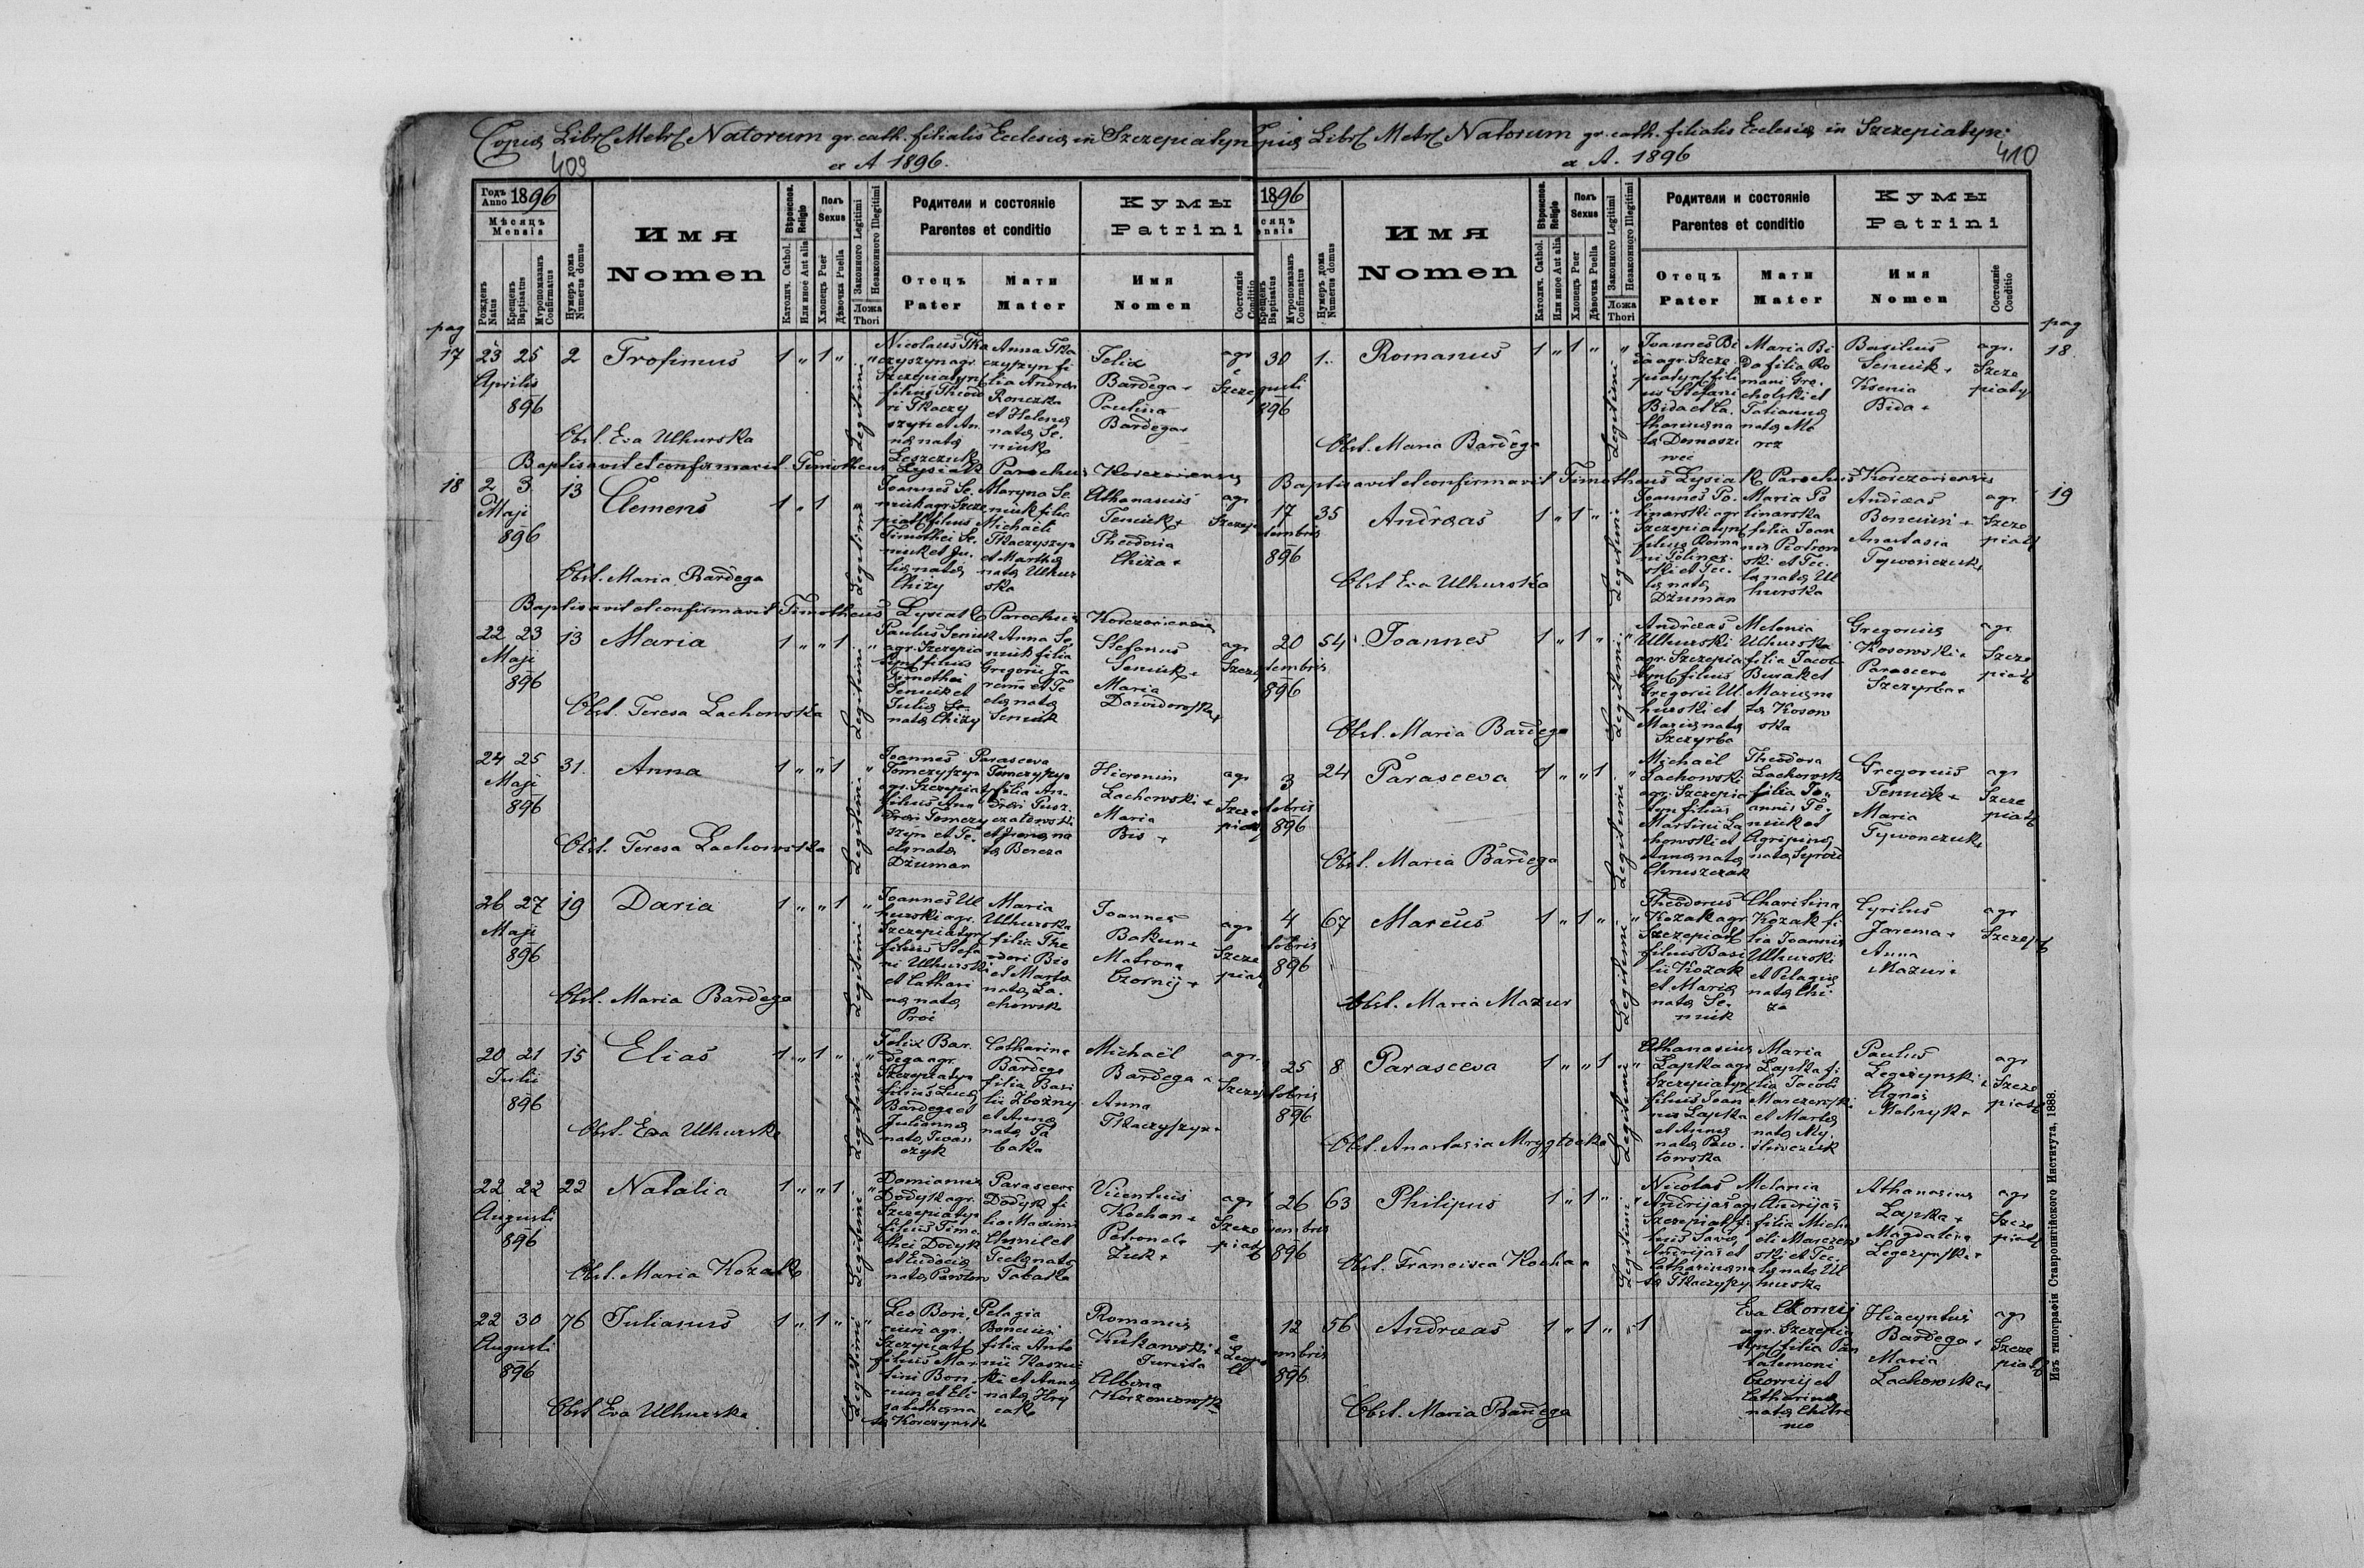 Copia Libri Metr. Natorum gr. cath. filialis Ecclesiae in Szczepiatyn
409
ex A 1896.
Годъ Anno 1896
Мѣсяцъ
Mensis
Рожденъ Natus
Крещенъ Baptisatus
Мѵропомазанъ Confirmatus
Нумеръ дома Numerus domus
Имя
Nomen
Вѣроиспов. Religio
Католич. Cathol.
Или иное Aut alia
Полъ
Sexus
Хлопецъ Puer
Дѣвочка Puella
Законного Legitimi
Незаконного Illegitimi
Ложа
Thori
Родители и состояніе
Parentes et conditio
Отецъ
Pater
Мати
Mater
Кумы
Patrini
Имя
Nomen
Состояніе
Conditio
pag
17
23 25 2 Trofimus 1 „ 1 „ „
Aprilis
896
Legitimi
Nicolaus Tka
czyszyn agr.
Szczepiatyn
filius Theodo
ri Tkaczy
szyn et An
na nata
Leszczuk
Anna Tka
czyszyn fi
lia Andrei
Ronczka
et Helena
nata Se.
niuk
Felix
Bardega +
Paulina
Bardega +
agr
Szczep
Obst. Eva Ulhurska
Baptisavit et confirmavit Timotheus Lysiak Parochus Korczoviensis
18
2 3 13 Clemens 1 „ 1 „
Maji
896
Legitimi
Joannes Se.
niuk agr. Szcze
piat filius
Timothei Se.
niuk et Ju.
lia nata
Chiży
Maryna Se.
niuk filia
Michaeli
Tkaczyszyn
et Martha
nata Ulhur
ska
Athanasius
Seniuk +
Theodosia
Chiża +
agr
Szczep
Obst. Maria Bardega
Baptisavit et confirmavit Timotheus Lysiak Parochus Korczoviensis
22 23 13 Maria 1 „ „ 1 „
Maji
896
Legitimi
Paulus Seniuk
agr. Szczepia
tyn filius
Timothei
Seniuk et
Julia
nata Chiży
Anna Se
niuk filia
Gregorii Ja
rema et Te
cla nata
Seniuk
Stefanus
Seniuk +
Maria
Dawidowska +
agr
Szczep
Obst. Teresa Lachowska
24 25 31. Anna 1 „ „ 1 „
Maji
896
Legitimi
Joannes
Tomczyszyn
agr. Szczepiat
filius An
drei Tomczy
szyn et Te.
cla nata
Dżuman
Parasceva
Tomczyszyn
filia An.
drei Pusz
czałowski
et Irena na
ta Borcza
Hieronim
Lachowski +
Maria
Bis +
agr
Szcze
piat
Obst. Teresa Lachowska
26 27 19 Daria 1 „ „ 1 „
Maji
896
Legitimi
Joannes Ul
hurski agr.
Szczepiatyn
filius Stefa
ni Ulhurski
et Cathari
na nata
Proć
Maria
Ulhurska
filia The
odori Bis
et Marta
nata La.
chowsk
Joannes
Bakun +
Matrona
Czornij +
agr
Szcze
piat
Obst. Maria Bardega
20 21 15 Elias 1 „ 1 „ „
Julii
896
Legitimi
Felix Bar.
dega agr.
Szczepiatyn
filius Luca
Bardega et
Julianna
nata Iwas
czyk
Catharina
Bardega
filia Basi
lii Zbożny
et Anna
nata Ta
baka
Michaël
Bardega +
Anna
Tkaczyszyn +
agr.
Szczep
Obst. Eva Ulhurska
22 22 22 Natalia 1 „ „ 1 „
Augusti
896
Legitimi
Damianus
Dodyk agr.
Szczepiatyn
filius Timo
thei Dodyk
et Eudocia
nata Pawłow
Parasceva
Dodyk fi
lia Maximi
Chmil et
Tecla nata
Tabaka
Vicentius
Kochan +
Petronela
Żuk +
agr
Szcze
piat
Obst. Maria Kozak
22 30 76 Julianus 1 „ 1 „ „
Augusti
896
Legitimi
Leo Bon.
ciuri agr.
Szczepiat
filius Mar
tini Bon.
ciuri et Eli
sabetha na
ta Korczynsk
Pelagia
Bonciuri
filia Anto
nii Kaszu
ki et Anna
nata Hry
cak
Romanus
Kukawski +
Jurista
Albina
Korzeniowsk
e
Leopo
li
Obst Eva Ulhurska
Copia Libri Metr. Natorum gr. cath. filialis Ecclesiae in Szczepiatyn.
410
ex A. 1896
1896
Крещенъ Baptisatus
Мѵропомазанъ Confirmatus
Нумеръ дома Numerus domus
Имя
Nomen
Вѣроиспов. Religio
Католич. Cathol.
Или иное Aut alia
Полъ
Sexus
Хлопецъ Puer
Дѣвочка Puella
Законного Legitimi
Незаконного Illegitimi
Ложа
Thori
Родители и состояніе
Parentes et conditio
Отецъ
Pater
Мати
Mater
Кумы
Patrini
Имя
Nomen
Состояніе
Conditio
pag
18
30 1. Romanus 1 „ 1 „ „
gusti
896
Legitimi
Joannes Bi
da agr. Szcze
piatyn fili
us Stefani
Bida et Ca.
tharina na
ta Domaszi
wec
Maria Bi
da filia Ro
mani Gre.
cholski et
Tatianna
nata Mo
roz
Basilius
Seniuk +
Ksenia
Bida +
agr.
Szcze
piaty
Obst. Maria Bardega
Baptisavit et confirmavit Timotheus Lysiak Parochus Korczoviensis
19
17 35 Andreas 1 „ 1 „
tembris
896
Legitimi
Joannes Po.
linarski agr
Szczepiatyn
filius Roma
ni Polinar.
ski et Tec.
la nata
Dżuman
Maria Po
linarska
filia Joan
nis Piotrow
ski et Tec.
la nata Ul
hurska
Andreas
Bonciuri +
Anastasia
Tywonczuk +
agr
Szcze
piat
Obst Eva Ulhurska
20 54 Joannes 1 „ 1 „ „
tembris
896
Legitimi
Andreas
Ulhurski
agr. Szczepia
tyn filius
Gregorii Ul.
hurski et
Maria nata
Szczyrba
Melania
Ulhurska
filia Jacob
Burak et
Maria na
ta Kosow
ska
Gregorius
Kosowski +
Parasceva
Szczyrba +
agr
Szcze
piat
Obst. Maria Bardega
3 24 Parasceva 1 „ „ 1 „
tobris
896
Legitimi
Michaël
Lachowski
agr. Szczepia
tyn filius
Martini La
chowski et
Anna nata
Chruszczak
Theodora
Lachowsk
filia Jo.
annis Se.
niuk et
Agripina
nata Syroid
Gregorius
Seniuk +
Maria
Tywonczuk +
agr
Szcze
piat
Obst. Maria Bardega
4 67 Marcus 1 „ 1 „ „
tobris
896
Legitimi
Theodorus
Kozak agr.
Szczepiat
filius Basi
lii Kozak
et Maria
nata Se.
niuk
Charitina
Kozak fi
lia Joannis
Ulhurski
et Pelagia
nata Chi
ża
Cyrilus
Jarema +
Anna
Mazur +
agr
Szczep
Obst. Maria Mazur
25 8 Parasceva 1 „ „ 1 „
tobris
896
Legitimi
Athanasius
Lapka agr
Szczepiatyn
filius Joan
nis Lapka
et Anna
nata Paw.
lowska
Maria
Lapka fi
lia Jacobi
Marczewski
et Marta
nata My.
sliwczuk
Paulus
Legeżynski +
Agnes
Malczyk +
agr
Szcze
piat
Obst. Anastasia Mrygłocka
26 63 Philipus 1 „ 1 „
embris
896
Legitimi
Nicolas
Andrijas agr
Szczepiat fi
lius Sava
Andrijas et
Catharina na
ta Tkaczyszy
Melania
Andrijas
filia Micha
eli Marczew
ski et Tec.
la nata Ul
hurska
Athanasius
Lapka +
Magdalena
Legeżynska +
agr
Szcze
piat
Obst. Francisca Kocha
12 56 Andreas 1 „ 1 „ „ 1
embris
896
Eva Czornij
agr. Szczepia
tyn filia Pan
talemoni
Czornij et
Catharina
nata Chitre
nio
Hiacyntus
Bardega +
Maria
Lachowska +
agr
Szcze
piat
Obst. Maria Bardega
Изъ типографіи Ставропигійского Института, 1888.